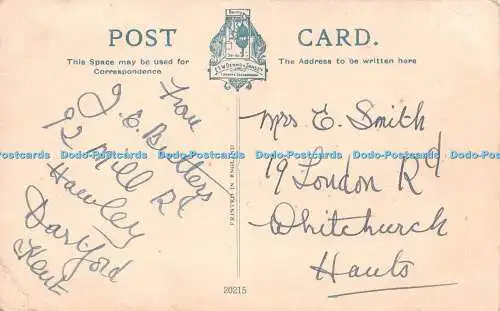 POST CARD.
This Space may be used for
Correspondence
The Address to be written here
From
J. E. Butters
92 Mill Rd
Hawley
Dartford
Kent
PRINTED IN ENGLAND
Mrs E. Smith
19 London Rd
Whitchurch
Hants
20215
Dodo-Postcards Dodo-Postcards Dodo-Postcards Dodo-Postcards Dodo-Postcards